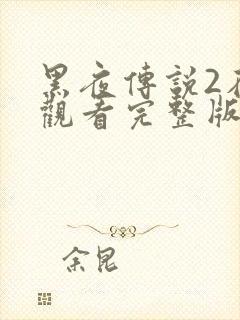 黑夜傳説2
觀看完整版
余昆